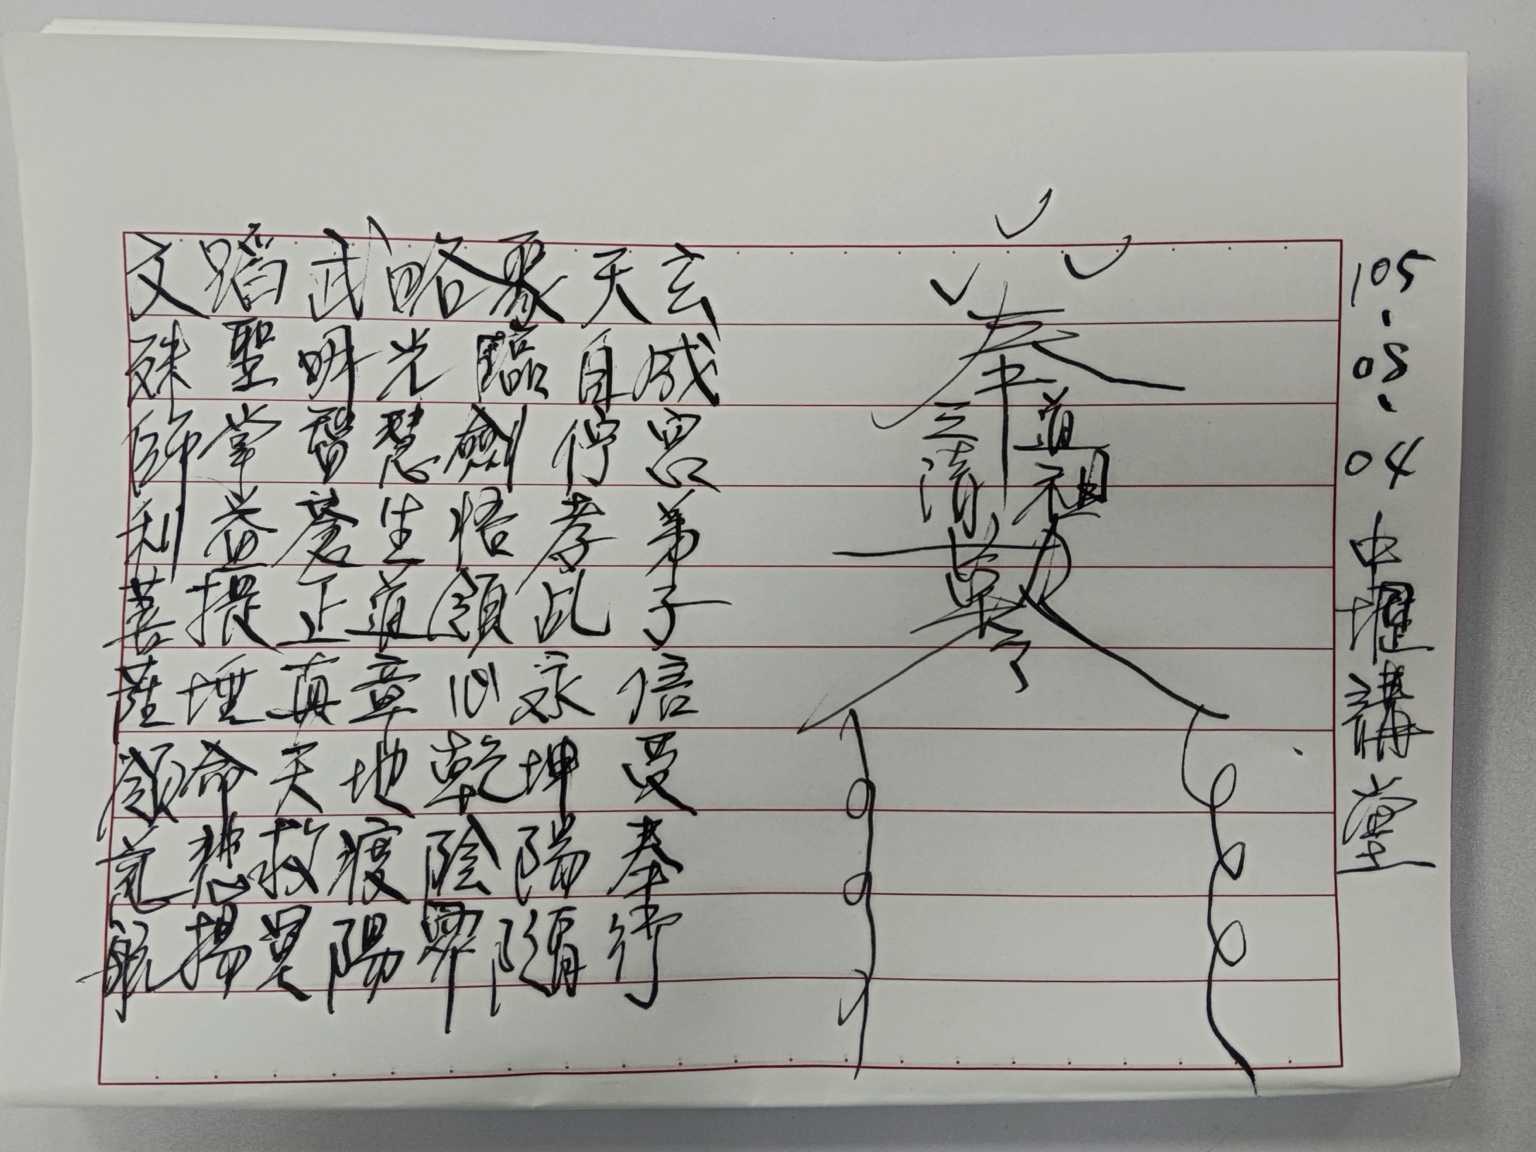 105.08.04 中壢講堂
奉
三清
道祖
文蹈武略聚天玄
殊聖明光臨自成
師掌智慧劍佇宮
利益蒼生悟孝弟
菩提正道領此子
薩埵真章心永信
領命天地乾坤受
慈悲救渡陰陽奉
航揚昊陽界隨行